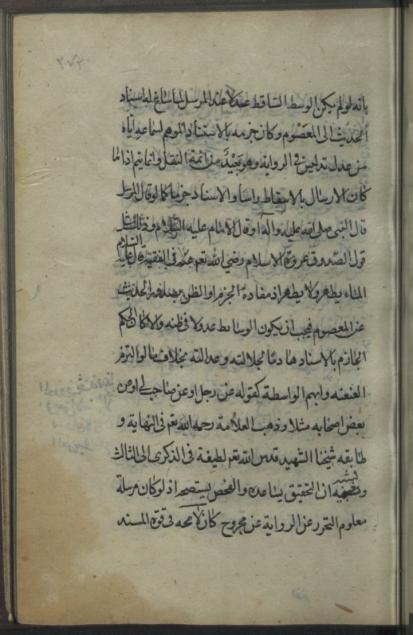 بانه لو لم يكن الوسط الساقط عدلا عند المرسل لما ساغ له اسناد
الحديث الى المعصوم وكان جزمه بالاسناد الموهم لسماعه اياه
من عدل تدليس في الرواية وهو بعيد من ائمة النقل وانما يتم اذا ما
كان الارسال بالاسقاط راسا والاسناد جزما كما لو قال المرسل
قال النبي صلى الله عليه وآله او قال الامام عليه السلام وذلك مثل
قول الصدوق عروة الاسلام رضي الله تعم عنه في الفقيه قال عليه السلام
الماء يطهر ولا يطهر اذ مفاده الجزم او الظن بصدور الحديث
عن المعصوم فيجب ان يكون الوسايط عدولا في ظنه والا كان الحكم
الجازم بالاسناد هادما لجلالته وعدالته بخلاف ما لو
العنعنة وابهم الواسطة كقوله عن رجل او عن صاحب لي او عن
بعض اصحابه مثلا وذهب العلامة رحمه الله تعم في النهاية و
طابقه شيخنا الشهيد قدس الله تعم لطيفه في الذكرى الى الثالث
ويشبه ان التحقيق يساعده والفحص يستصحه اذ لو كان مرسله
معلوم التحرز عن الرواية عن مجروح كان لا محة في قوة المسند